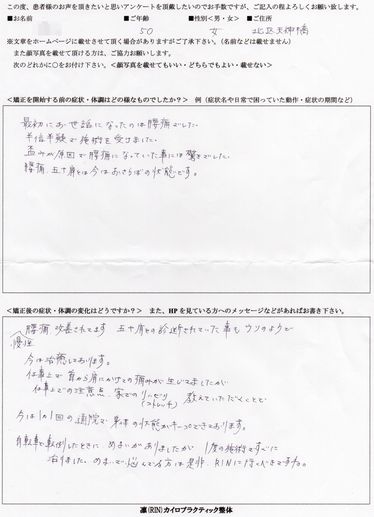 この度、患者様のお声を頂きたいと思いアンケートを頂戴したいのでお手数ですが、ご記入の程よろしくお願い致します。
■お名前 ■ご年齢 ■性別＜男・女＞ ■ご住所
50 女 北区天神橋
※文章をホームページに載せさせて頂く場合がありますがご了承下さい。（名前などは載せません）
また顔写真を載せて頂ける方は、ご協力お願いします。
次のどれかに○をお付け下さい。＜顔写真を載せてもいい・どちらでもよい・載せない＞
＜矯正を開始する前の症状・体調はどの様なものでしたか？＞ 例（症状名や日常で困っていた動作・症状の期間など）
最初にお世話になったのは腰痛でした。
半信半疑で施術を受けました。
歪みが原因で腰痛になっていた事には驚きでした。
腰痛、五十肩とは今はおさらばの状態です。
＜矯正後の症状・体調の変化はどうですか？＞ また、HPを見ている方へのメッセージなどがあればお書き下さい。
腰痛 改善されてます 五十肩との診断されていた事もウソのようで
今は治癒しております。
仕事上で首から肩にかけての痛みが生じてましたが
仕事上での注意点、家でのリハビリ(ストレッチ) 教えていただくことで
今は1カ月1回の通院で 状態がキープできております。
自転車で転倒したときに めまいがありましたが 1度の施術ですぐに
治りました。めまいで悩んでいる方は是非、RINに行くべきですね。
凛(RIN)カイロプラクティック整体